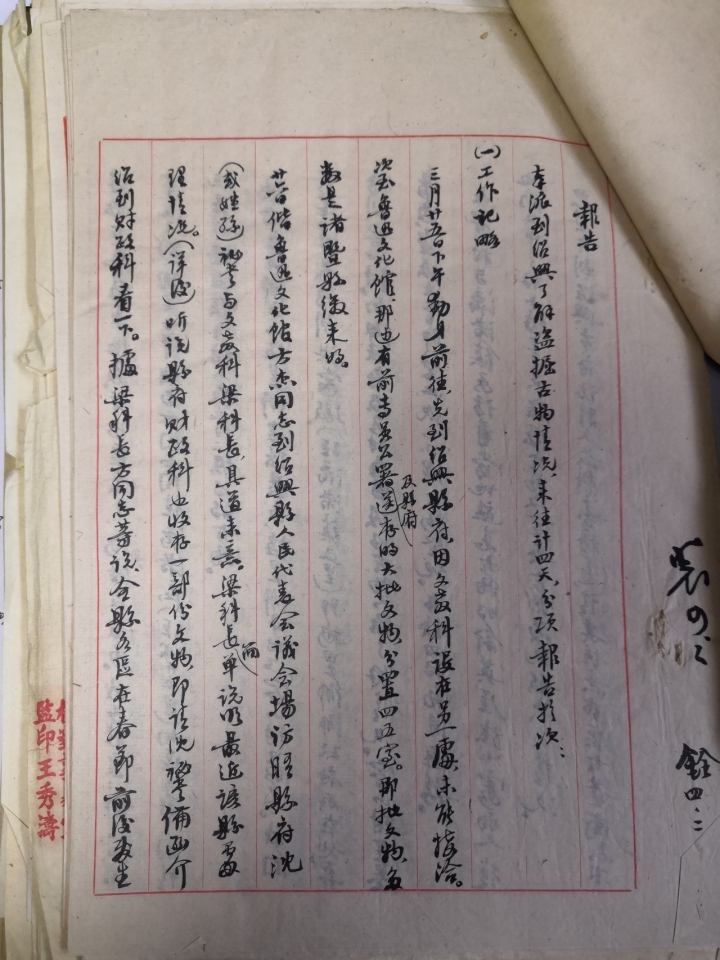 報告
奉派到紹興了解盜掘古物情况,来往計四天,分項報告於次:
(一)工作記略
三月廿五日下午動身前往,先到紹興縣府,因文教科設在另一處,未能接洽。
次至魯迅文化館,那边有前专員公署及縣府送存的大批文物,分置四五室。那批文物,多
数是諸暨縣繳来的。
廿六日偕魯迅文化館方杰同志到紹興縣人民代表会議会場訪晤縣府沈
秘書与文教科梁科長,具道来意。梁科長簡单説明最近該縣
理情况。(詳後)听说縣府财政科也收存一部份文物,即請沈秘書備函介
紹到财政科看一下。據梁科長方同志等説,全縣各區在春節前後發生
銓 四.二
監印王秀濤